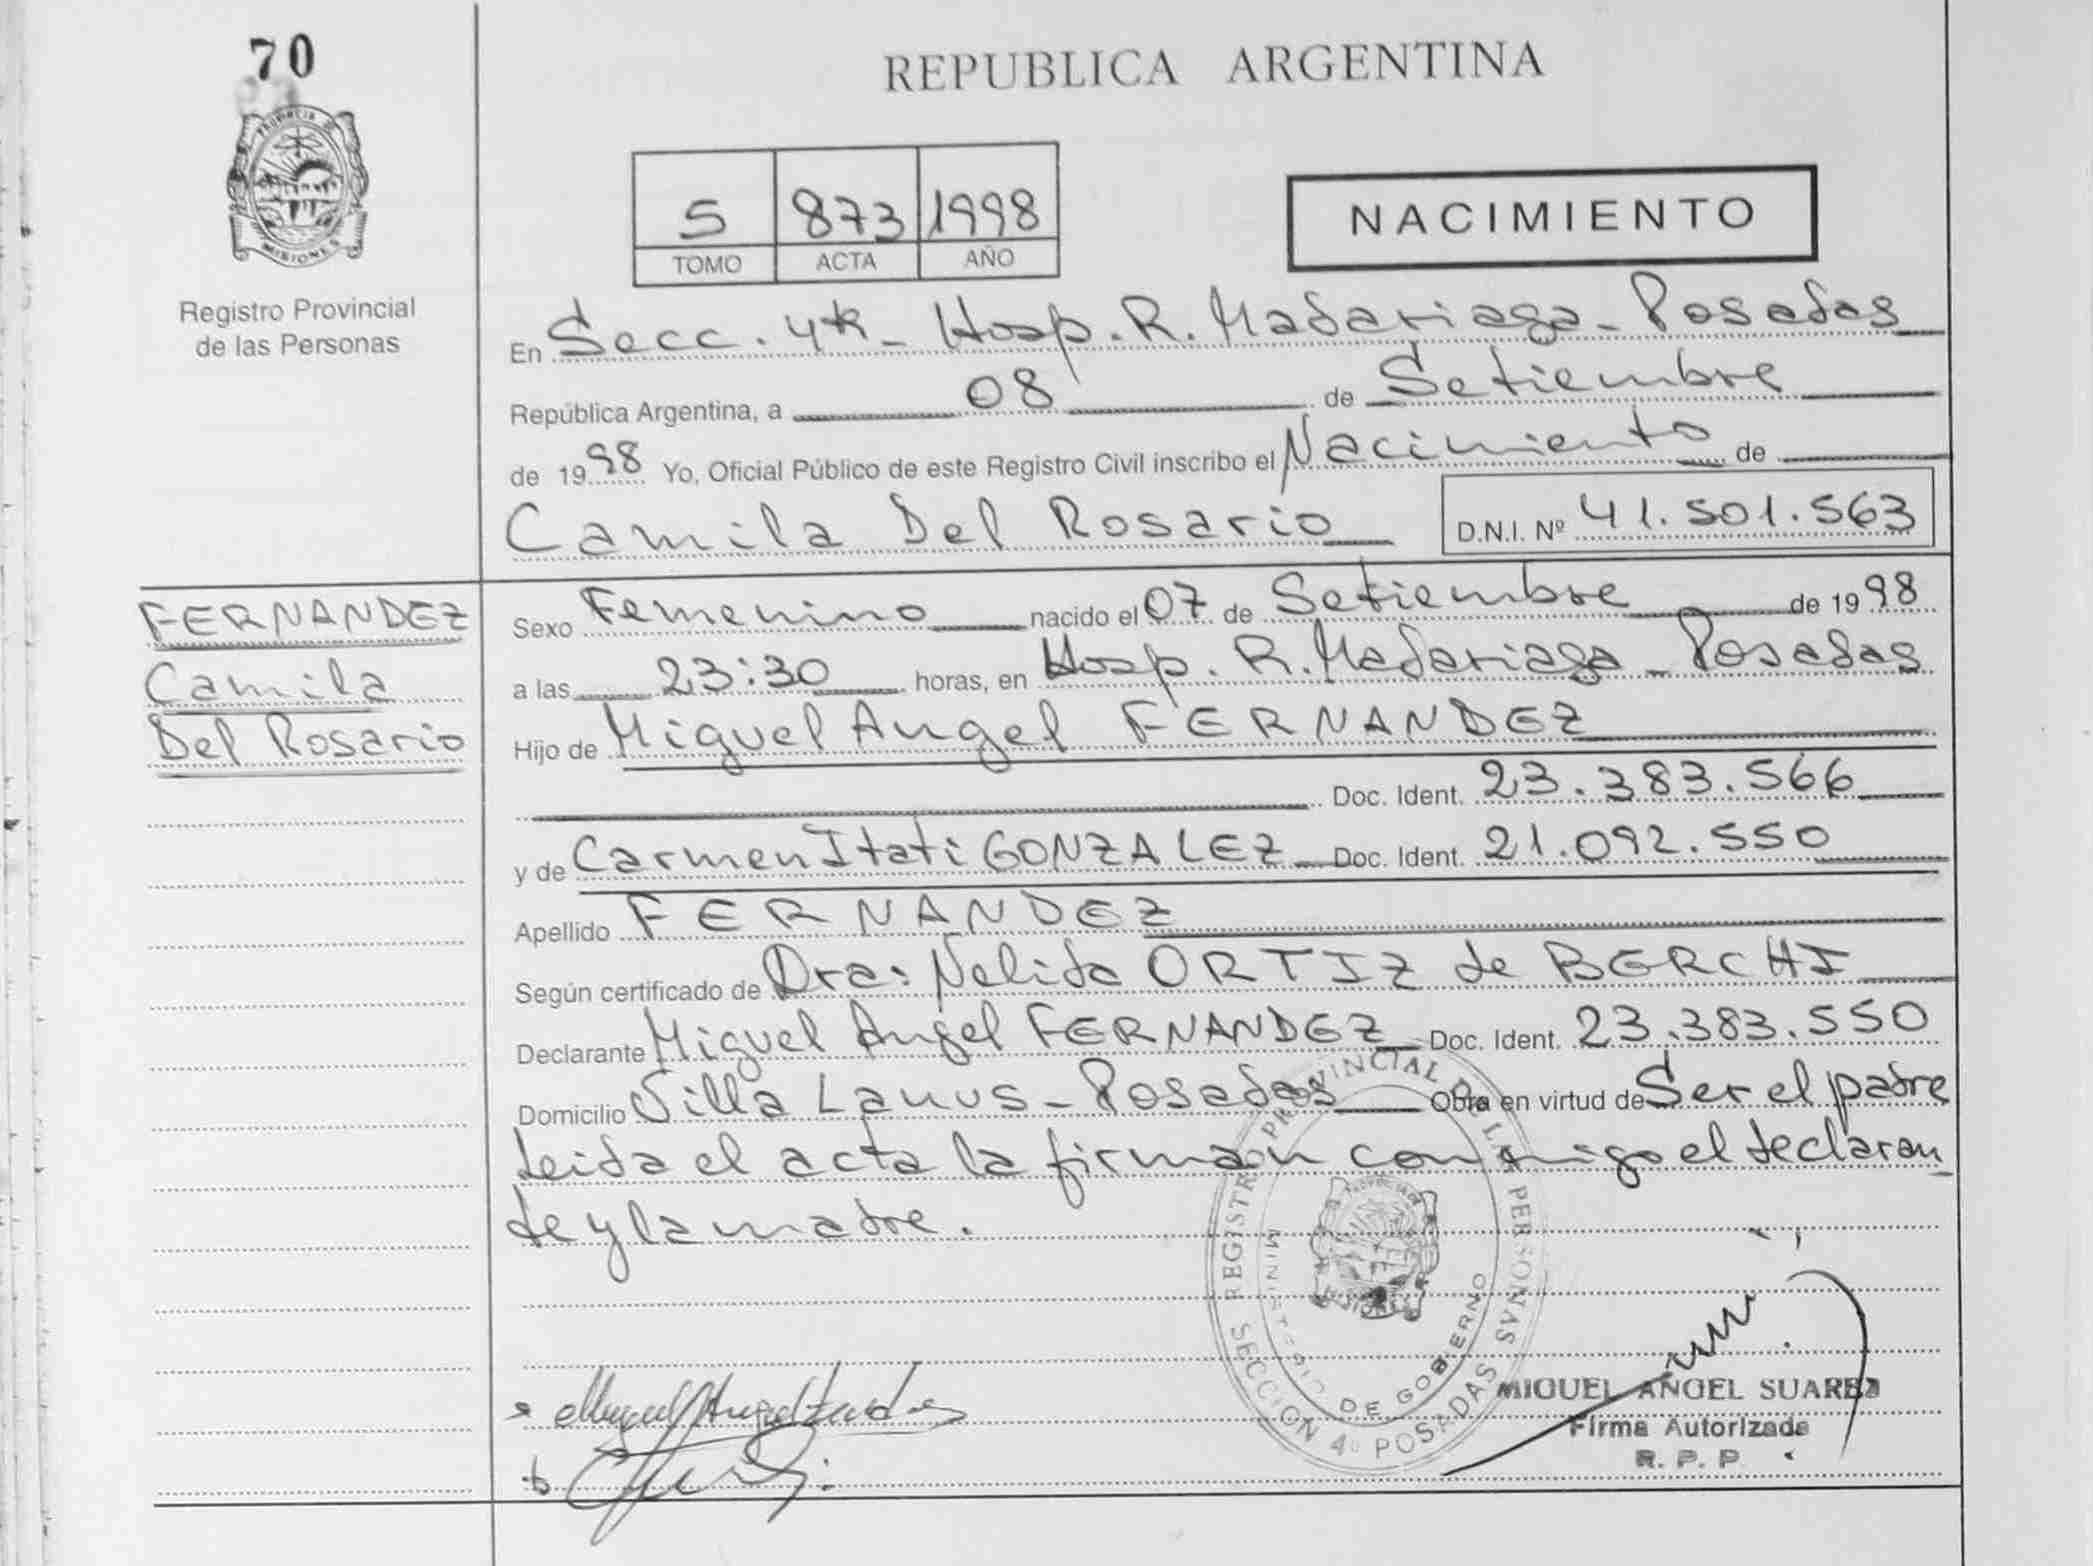 70
PROVINCIA DE
MISIONES
Registro Provincial
de las Personas
REPUBLICA ARGENTINA
5 873 1998
TOMO ACTA AÑO
NACIMIENTO
En Secc. 4ta - Hosp. R. Madariaga - Posadas
República Argentina, a 08 de Setiembre
de 1998 Yo, Oficial Público de este Registro Civil inscribo el Nacimiento de
Camila Del Rosario D.N.I. Nº 41.501.563
FERNANDEZ
Camila
Del Rosario
Sexo Femenino nacido el 07 de Setiembre de 1998
a las 23:30 horas, en Hosp. R. Madariaga - Posadas
Hijo de Miguel Angel FERNANDEZ
Doc. Ident. 23.383.566
y de Carmen Itati GONZALEZ Doc. Ident. 21.092.550
Apellido FERNANDEZ
Según certificado de Dra: Nelida ORTIZ de BERCHI
Declarante Miguel Angel FERNANDEZ Doc. Ident. 23.383.550
Domicilio Villa Lanus - Posadas Obra en virtud de Ser el padre
Leida el acta la firman conmigo el declaran
te y la madre.
REGISTRO PROVINCIAL DE LAS PERSONAS
MINISTERIO DE GOBIERNO
SECCION 4º POSADAS
Miguel Angel Fernandez
MIGUEL ANGEL SUAREZ
Firma Autorizada
R. P. P